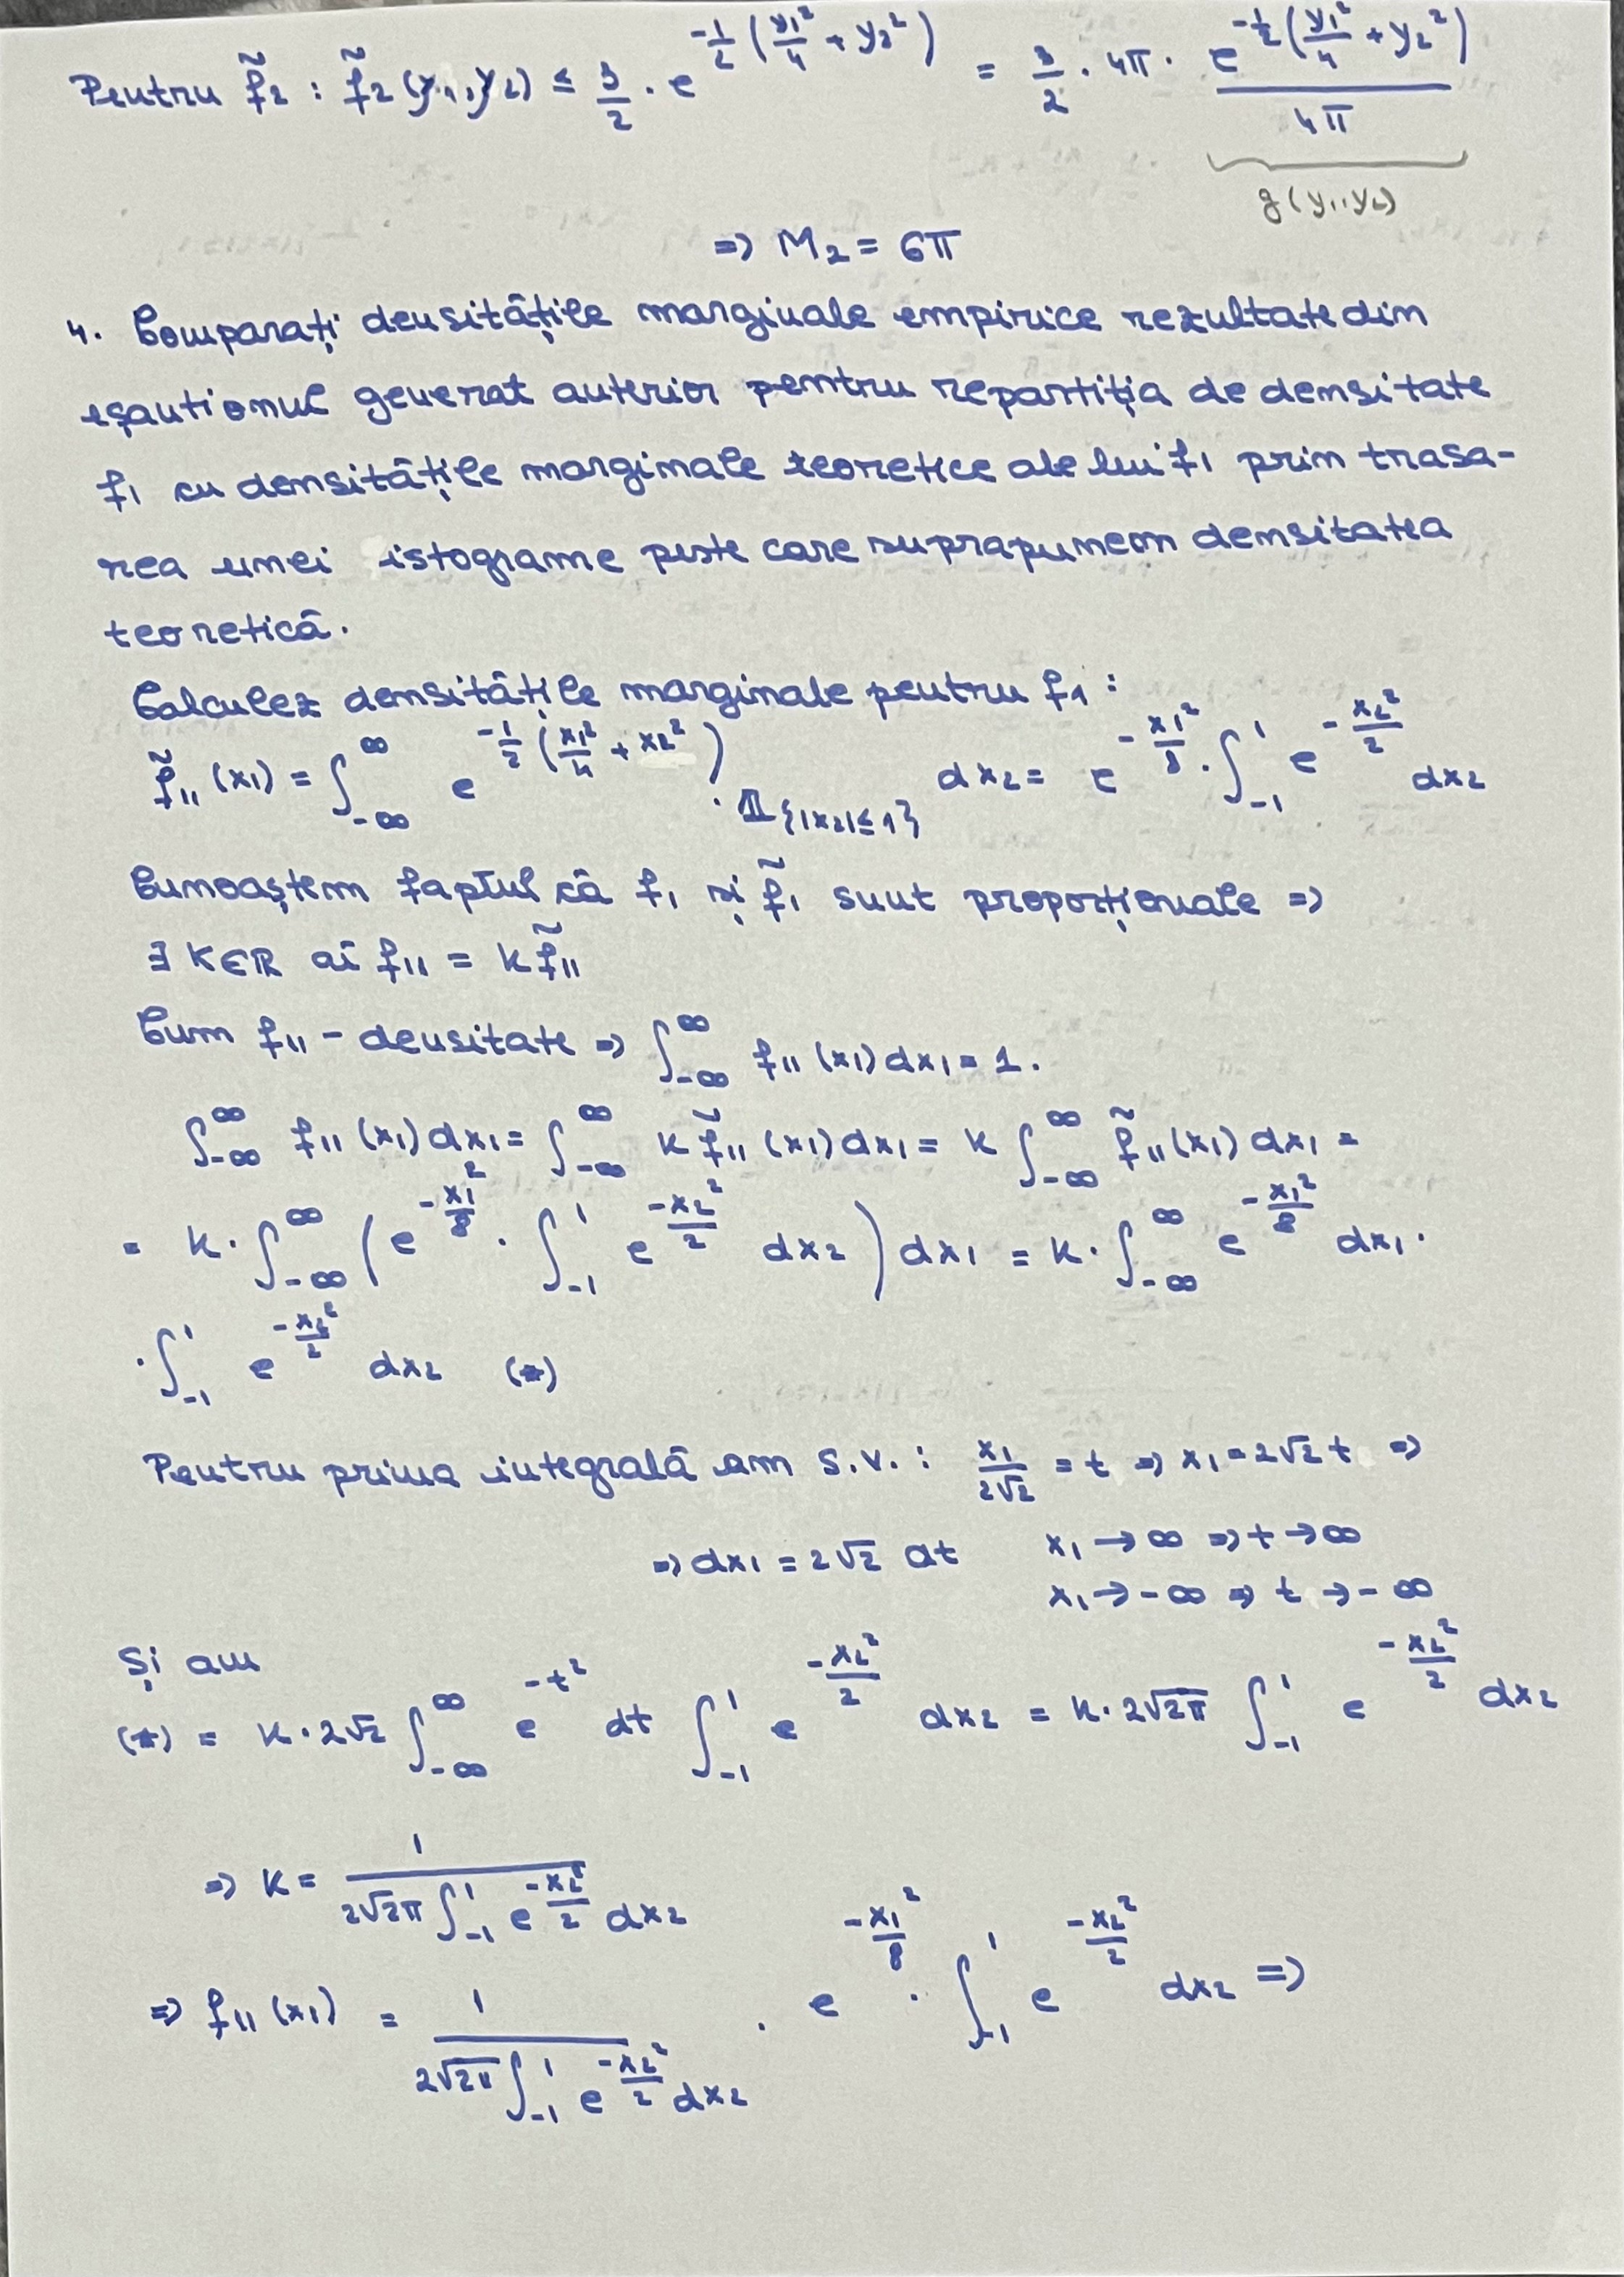 Pentru f̃₂ : f̃₂(y₁,y₂) ≤ 3/2 · e^(-1/2 (y₁²/4 + y₂²)) = 3/2 · 4π · e^(-1/2 (y₁²/4 + y₂²)) / 4π
g(y₁,y₂)
=> M₂ = 6π
4. Comparați densitățile marginale empirice rezultate din
eșantionul generat anterior pentru repartiția de densitate
f₁ cu densitățile marginale teoretice ale lui f₁ prin trasa-
rea unei istograme peste care suprapunem densitatea
teoretică.
Calculez densitățile marginale pentru f₁ :
f̃₁₁(x₁) = ∫_{-∞}^{∞} e^(-1/2 (x₁²/4 + x₂²)) · 𝟙_{|x₂|≤1} dx₂ = e^(-x₁²/8) · ∫_{-1}^{1} e^(-x₂²/2) dx₂
Cunoaștem faptul că f₁ și f̃₁ sunt proporționale =>
∃ K∈ℝ aî f₁₁ = k f̃₁₁
Cum f₁₁ - densitate => ∫_{-∞}^{∞} f₁₁(x₁)dx₁ = 1.
∫_{-∞}^{∞} f₁₁(x₁)dx₁ = ∫_{-∞}^{∞} k f̃₁₁(x₁)dx₁ = k ∫_{-∞}^{∞} f̃₁₁(x₁)dx₁ =
= k · ∫_{-∞}^{∞} (e^(-x₁²/8) · ∫_{-1}^{1} e^(-x₂²/2) dx₂) dx₁ = k · ∫_{-∞}^{∞} e^(-x₁²/8) dx₁ ·
· ∫_{-1}^{1} e^(-x₂²/2) dx₂ (*)
Pentru prima integrală am s.v. : x₁/2√2 = t => x₁ = 2√2 t =>
=> dx₁ = 2√2 dt x₁ → ∞ => t → ∞
x₁ → -∞ => t → -∞
Și am
(*) = k · 2√2 ∫_{-∞}^{∞} e^(-t²) dt ∫_{-1}^{1} e^(-x₂²/2) dx₂ = k · 2√2π ∫_{-1}^{1} e^(-x₂²/2) dx₂
=> K = 1 / (2√2π ∫_{-1}^{1} e^(-x₂²/2) dx₂)
=> f₁₁(x₁) = 1 / (2√2π ∫_{-1}^{1} e^(-x₂²/2) dx₂) · e^(-x₁²/8) · ∫_{-1}^{1} e^(-x₂²/2) dx₂ =>